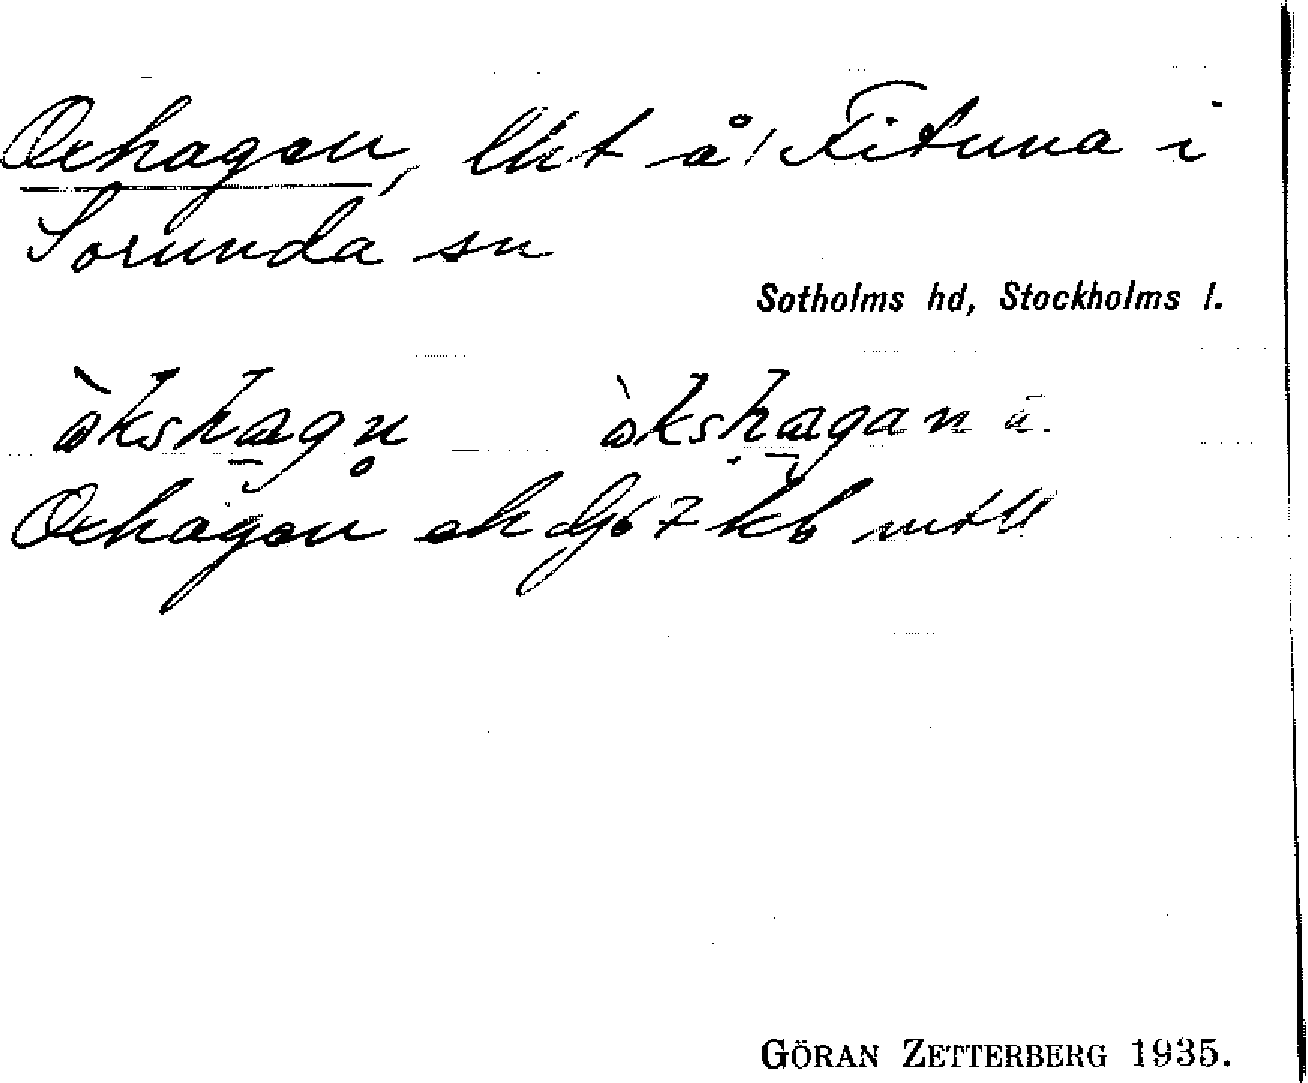 Oxhagen, lht å/ Fituna i
Sorunda sn
Sotholms hd, Stockholms l.
òkshagn òkshagan ä.
Oxhagen ek dg67 kb
GÖRAN ZETTERBERG 1935.